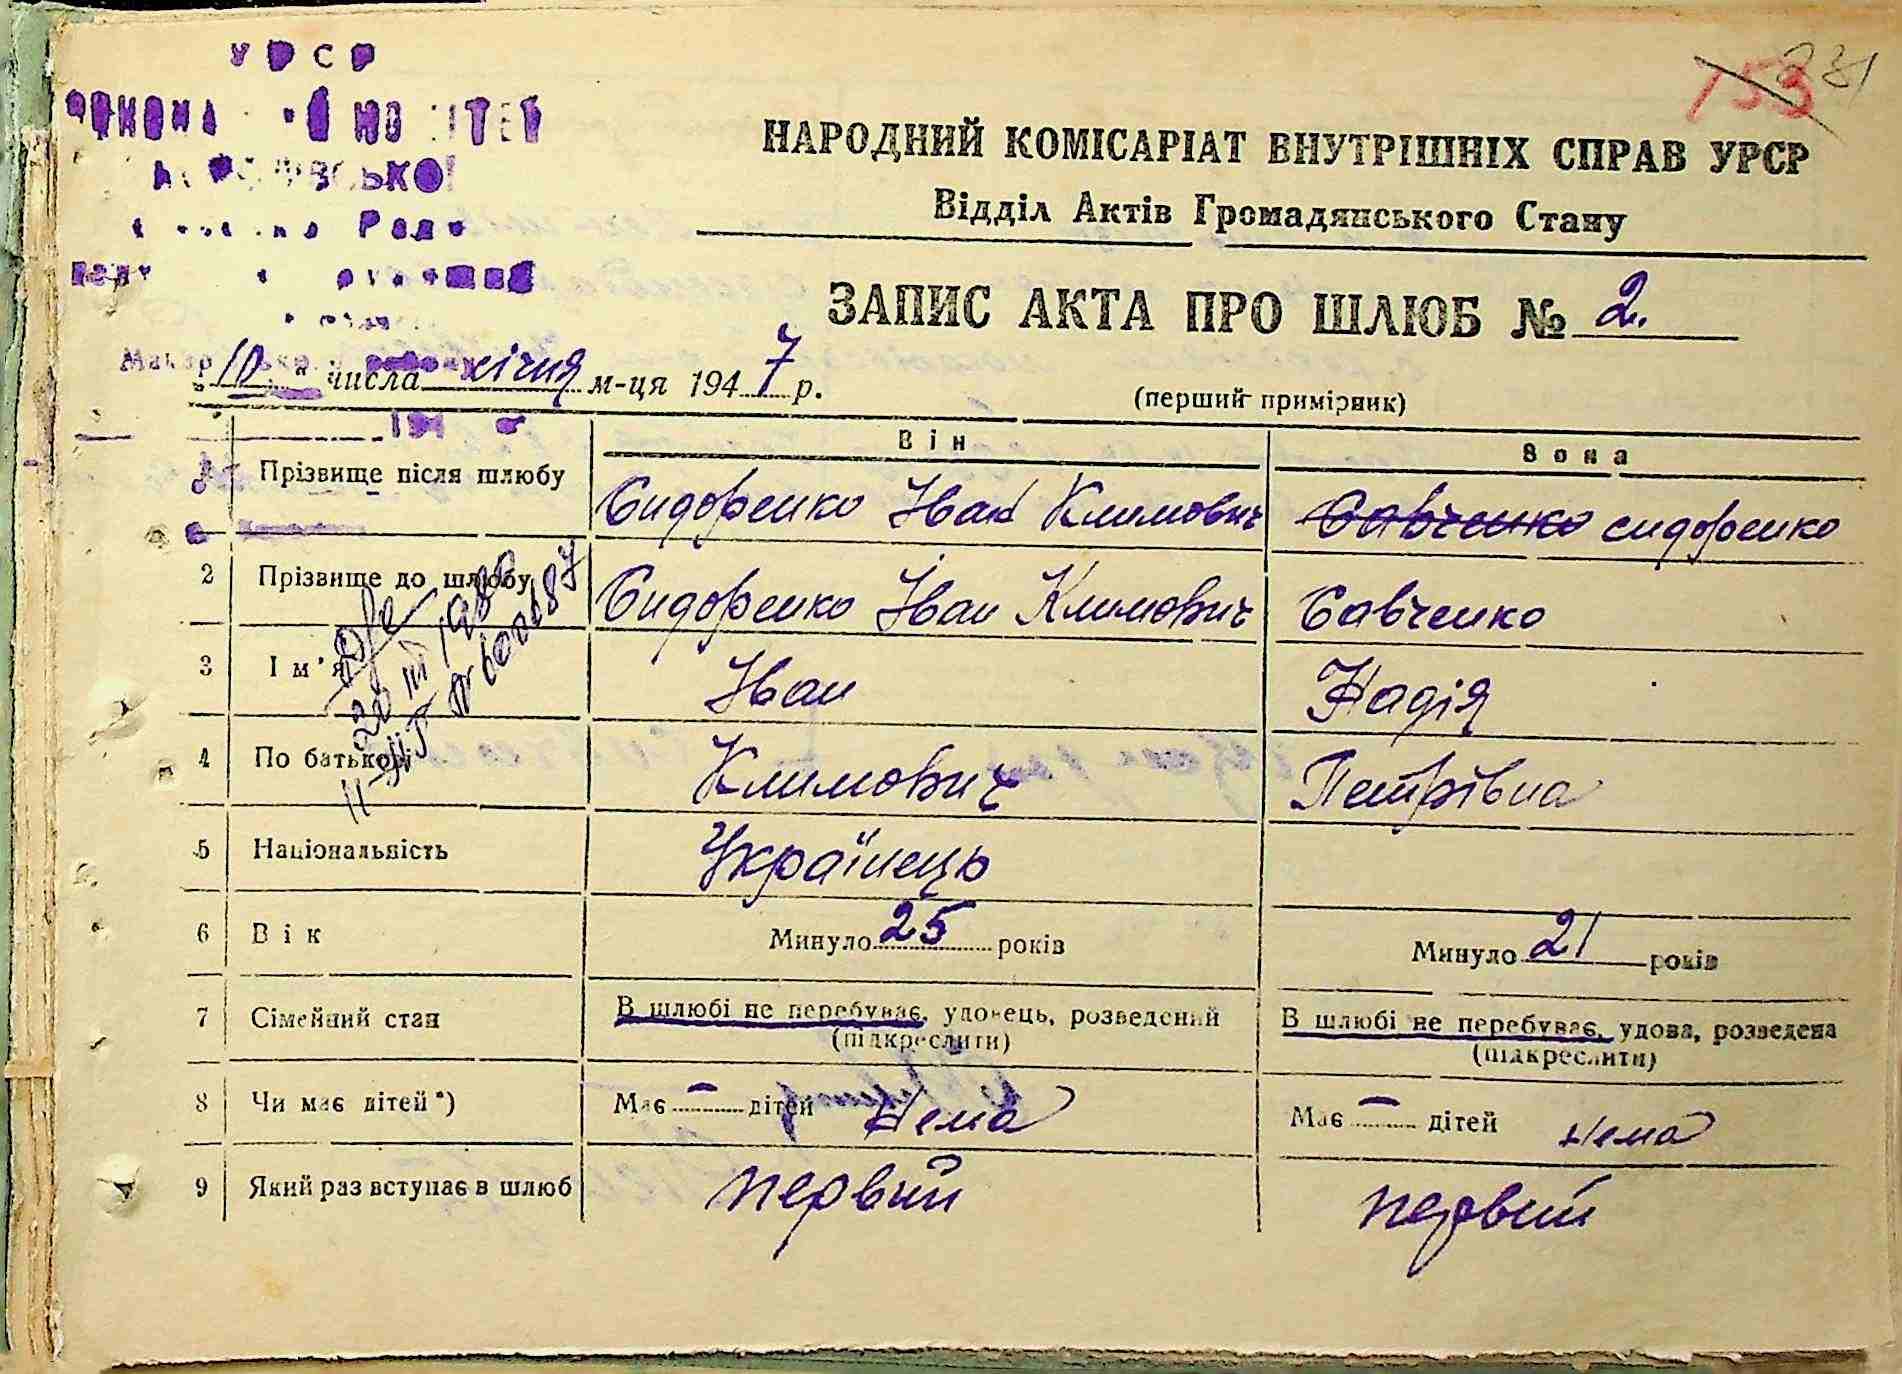 УРСР
153 231
НАРОДНИЙ КОМІСАРІАТ ВНУТРІШНІХ СПРАВ УРСР
Відділ Актів Громадянського Стану
ЗАПИС АКТА ПРО ШЛЮБ № 2.
„10" числа січня м-ця 1947 р.
(перший примірник)
Він Вона
1 Прізвище після шлюбу Сидоренко Іван Климович Савченко сидоренко
2 Прізвище до шлюбу Сидоренко Іван Климович Савченко
3 Ім'я Іван Надія
4 По батькові Климович Петрівна
5 Національність Українець
6 Вік Минуло 25 років Минуло 21 років
7 Сімейний стан В шлюбі не перебуває, удовець, розведений В шлюбі не перебуває, удова, розведена
(підкреслити) (підкреслити)
8 Чи має дітей*) Має – дітей Нема Має – дітей Нема
9 Який раз вступає в шлюб первий первий
20 III 1980
II-МГ № 600187